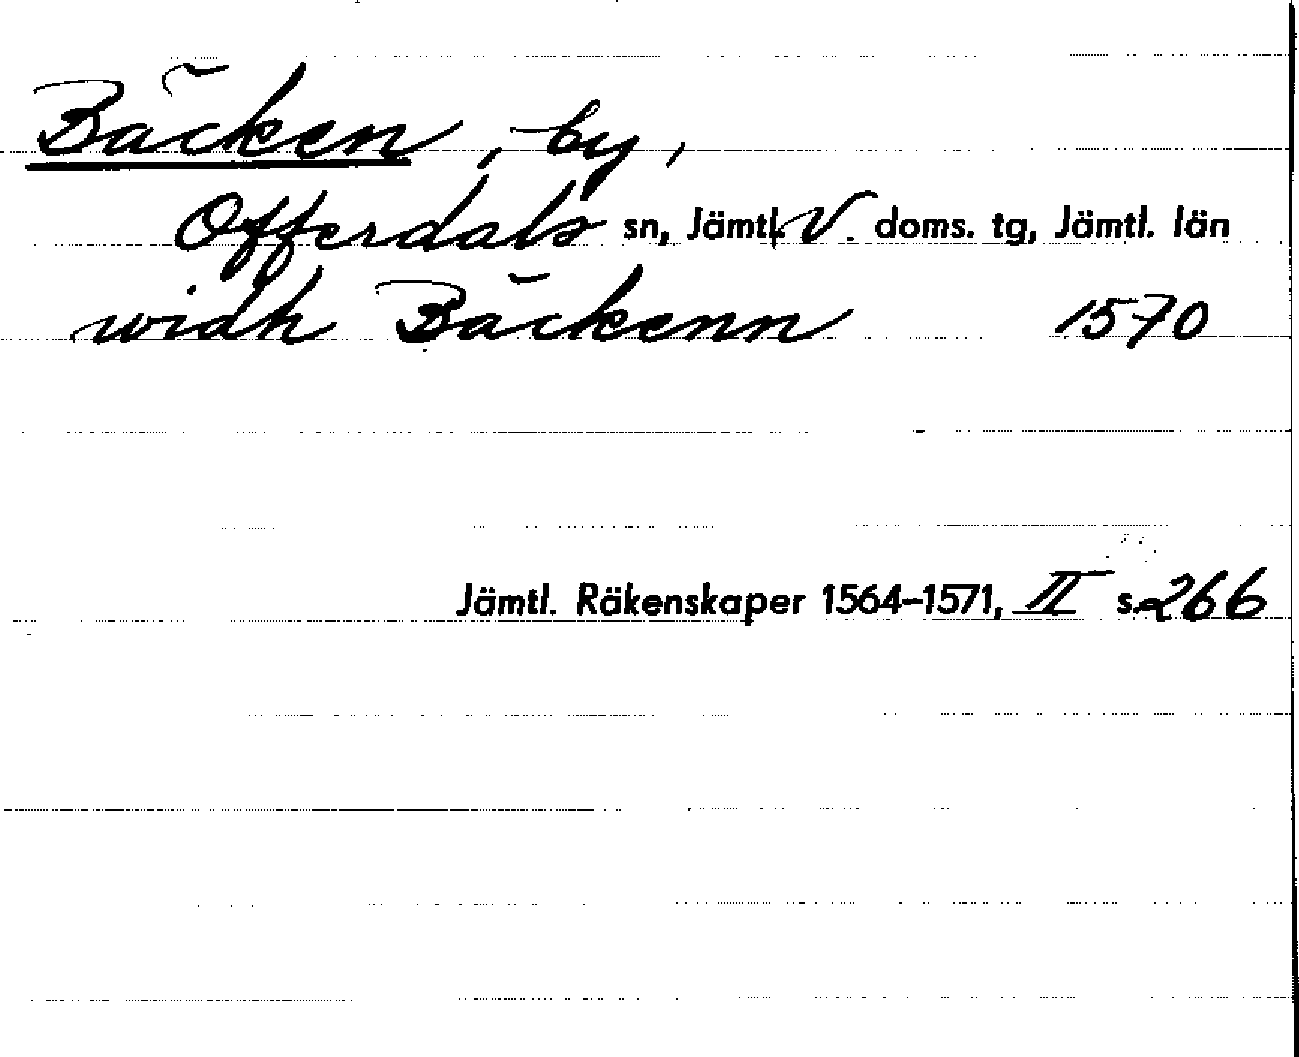 Bäcken, by,
Offerdals sn, Jämtl. V. doms. tg, Jämtl. län
widh Bäckenn 1570
Jämtl. Räkenskaper 1564–1571, II s. 266